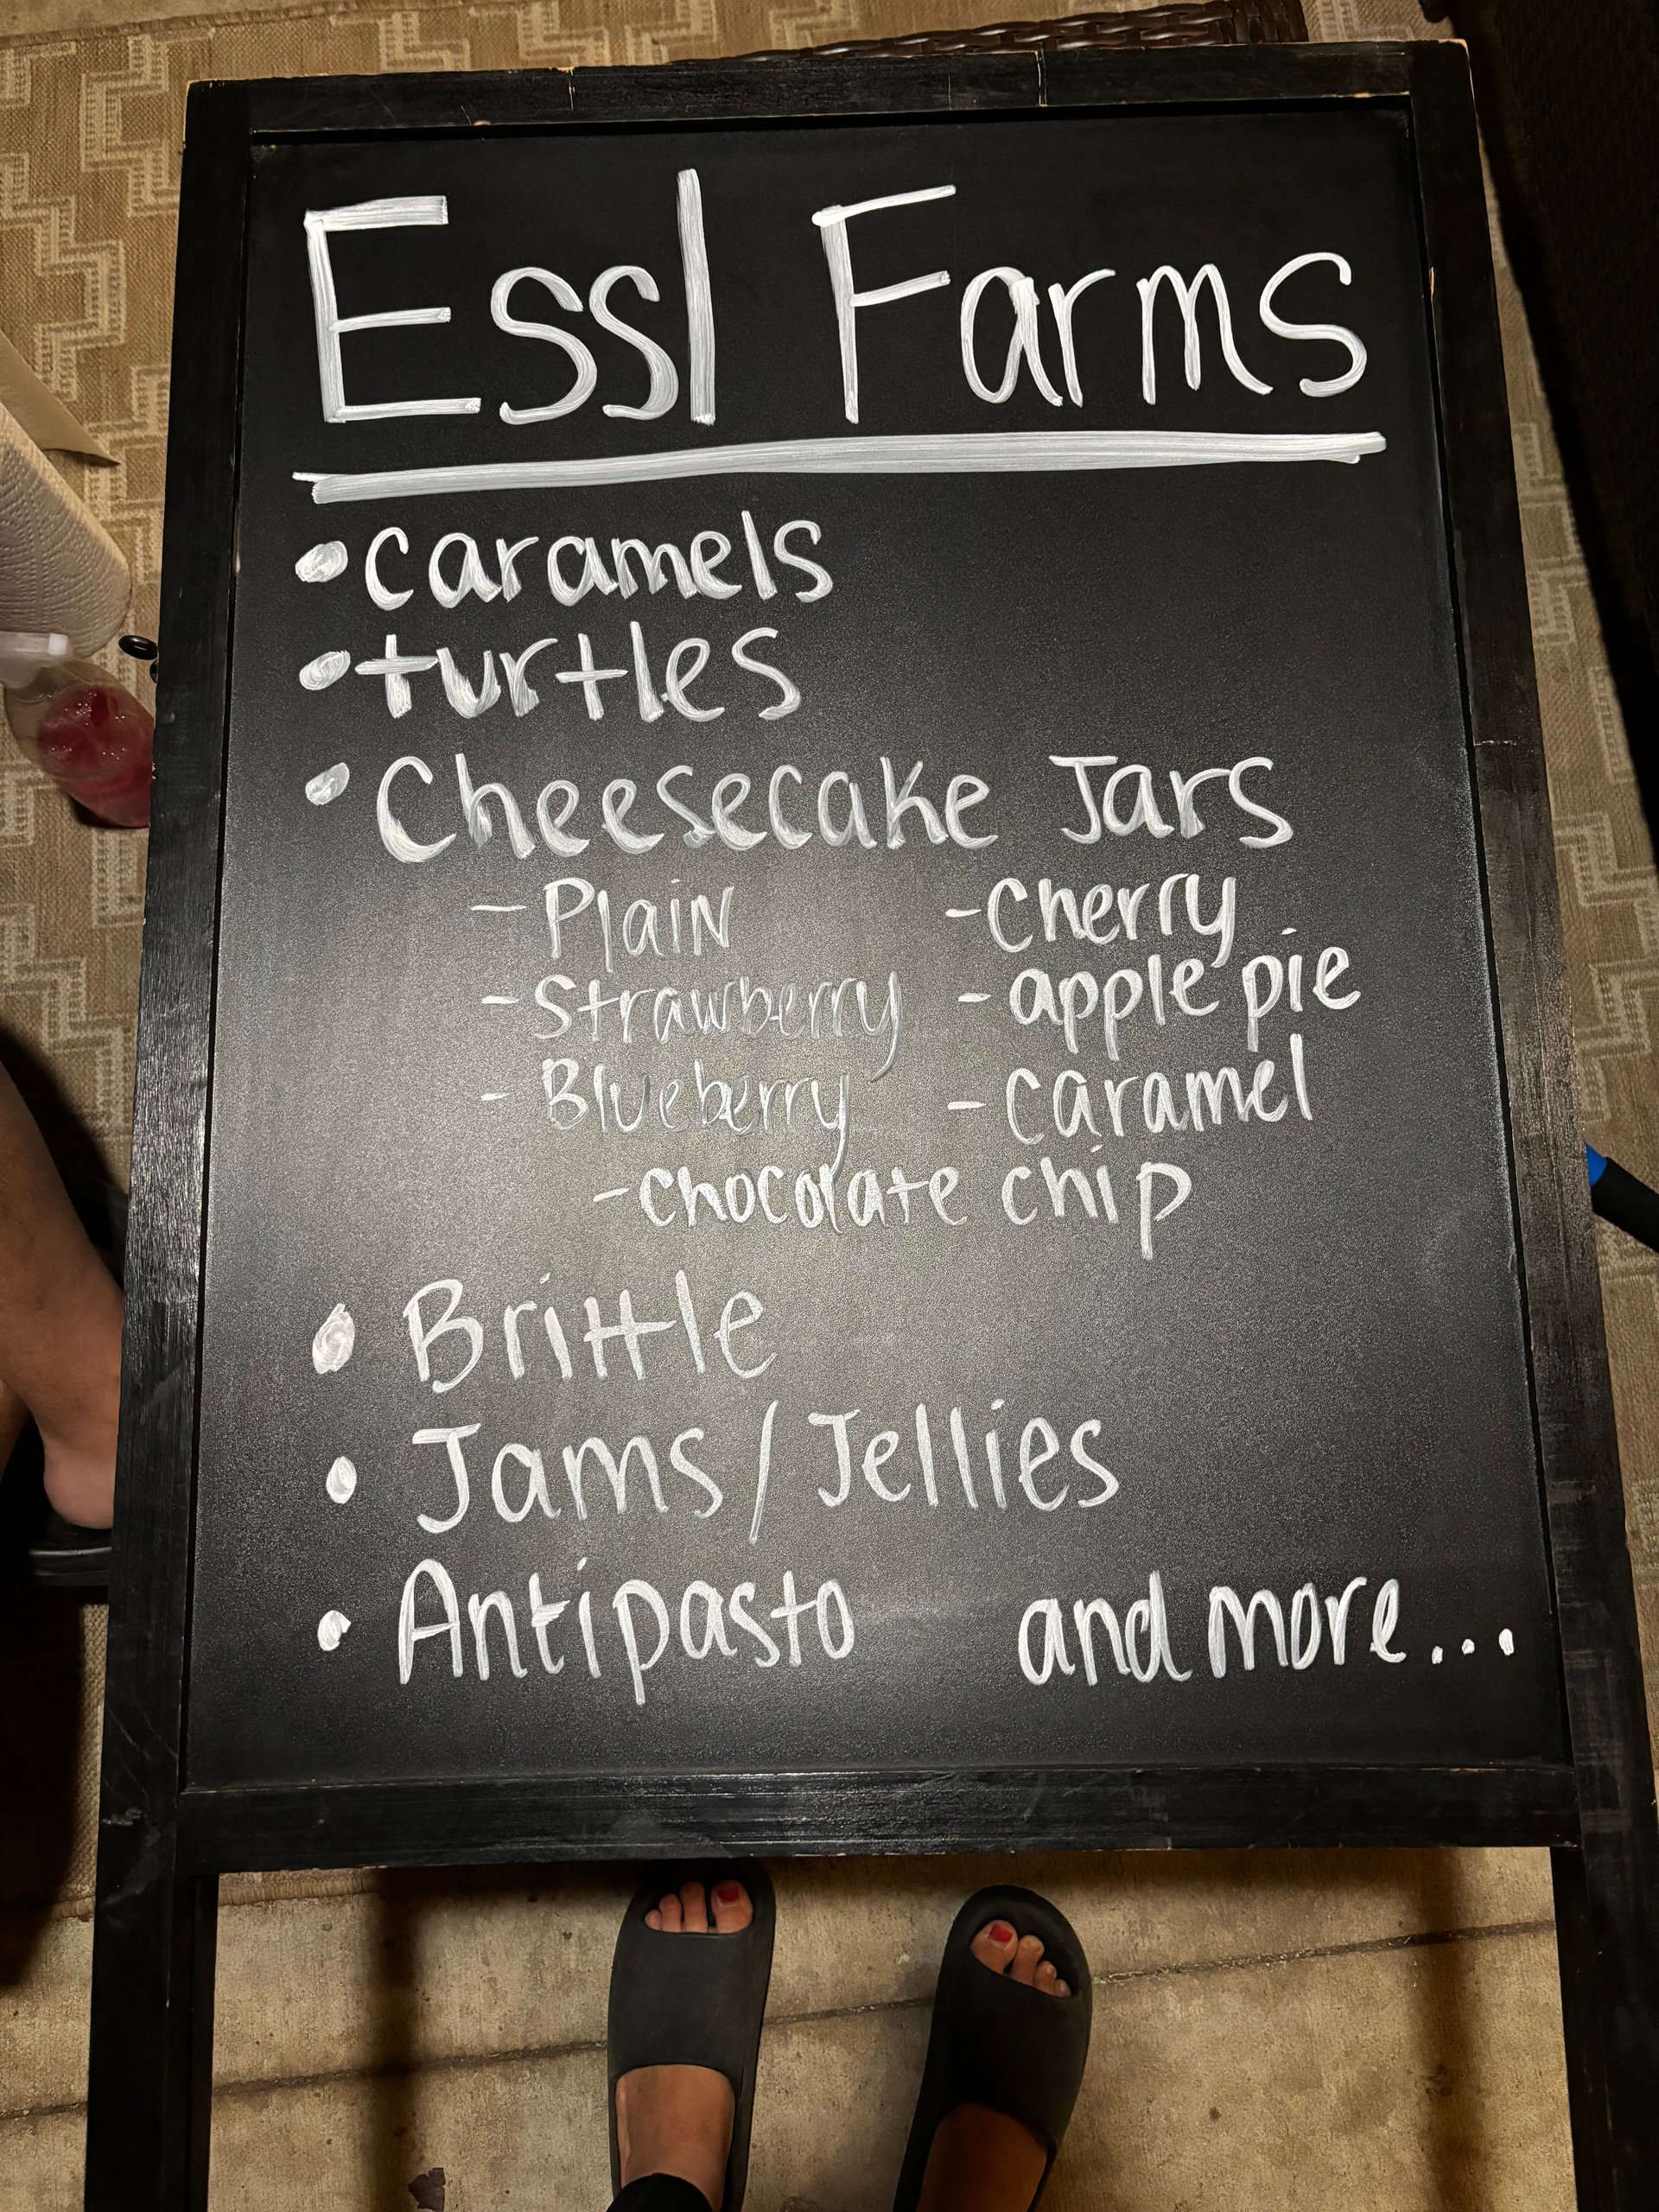 Essl Farms
• caramels
• turtles
• Cheesecake Jars
- Plain - Cherry
- Strawberry - apple pie
- Blueberry - caramel
- chocolate chip
• Brittle
• Jams / Jellies
• Antipasto and more...